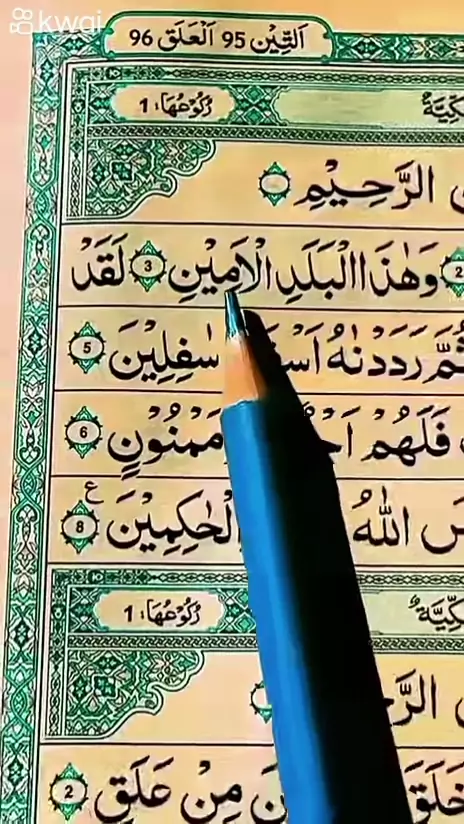 kwai
اَلتِّيْن 95 اَلْعَلَق 96
كِّيَّةٌ
رُكُوْعُهَا: 1
الرَّحِيْمِ
2 وَهٰذَا الْبَلَدِ الْاَمِيْنِ 3 لَقَدْ
ثُمَّ رَدَدْنٰهُ سٰفِلِيْنَ 5
فَلَهُمْ مَمْنُوْنٍ 6
اللّٰهُ الْحٰكِمِيْنَ 8 ع
كِّيَّةٌ
رُكُوْعُهَا: 1
مِنْ عَلَقٍ 2